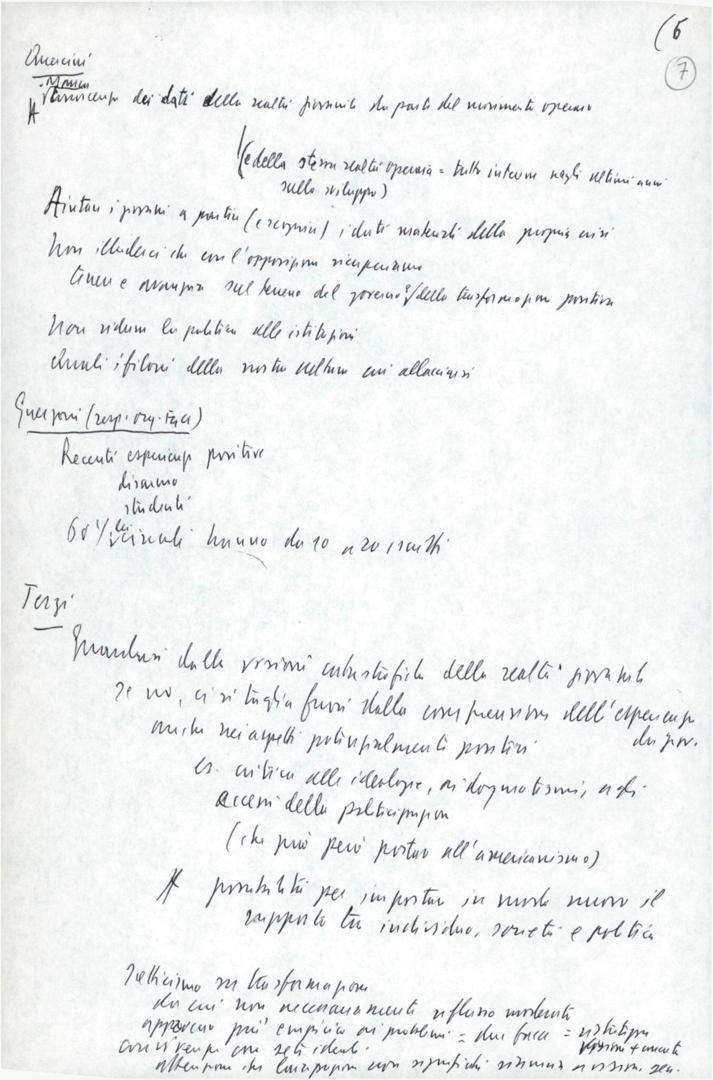 (6
7
Quercini
Manca
conoscenza dei dati della realtà giovanile da parte del movimento operaio
(e della stessa realtà operaia = tutto interno negli ultimi anni
sullo sviluppo)
Aiutare i giovani a partire (e scoprire) i dati materiali della propria crisi
Non illuderci che con l'opposizione recuperiamo
tenere e avanzare sul terreno del governo e della trasformazione positiva
Non ridurre la politica alle istituzioni
Quali i filoni della nostra cultura cui allacciarsi
Guerzoni (resp. org. FGCI)
Recenti esperienze positive
disarmo
studenti
60% dei circoli hanno da 10 a 20 iscritti
Terzi
Guardarsi dalla visione catastrofica della realtà giovanile
Se no, ci si taglia fuori dalla comprensione dell'esperienza
dei giov.
anche nei aspetti potenzialmente positivi
es. critica alle ideologie, ai dogmatismi, agli
eccessi della politicizzazione
(che può però portare all'americanismo)
possibilità per impostare in modo nuovo il
rapporto tra individuo, società e politica
Scetticismo su trasformazione
da cui non necessariamente riflusso moderato
approccio più empirico ai problemi = due facce =
convivenza con
attenzione che non significhi